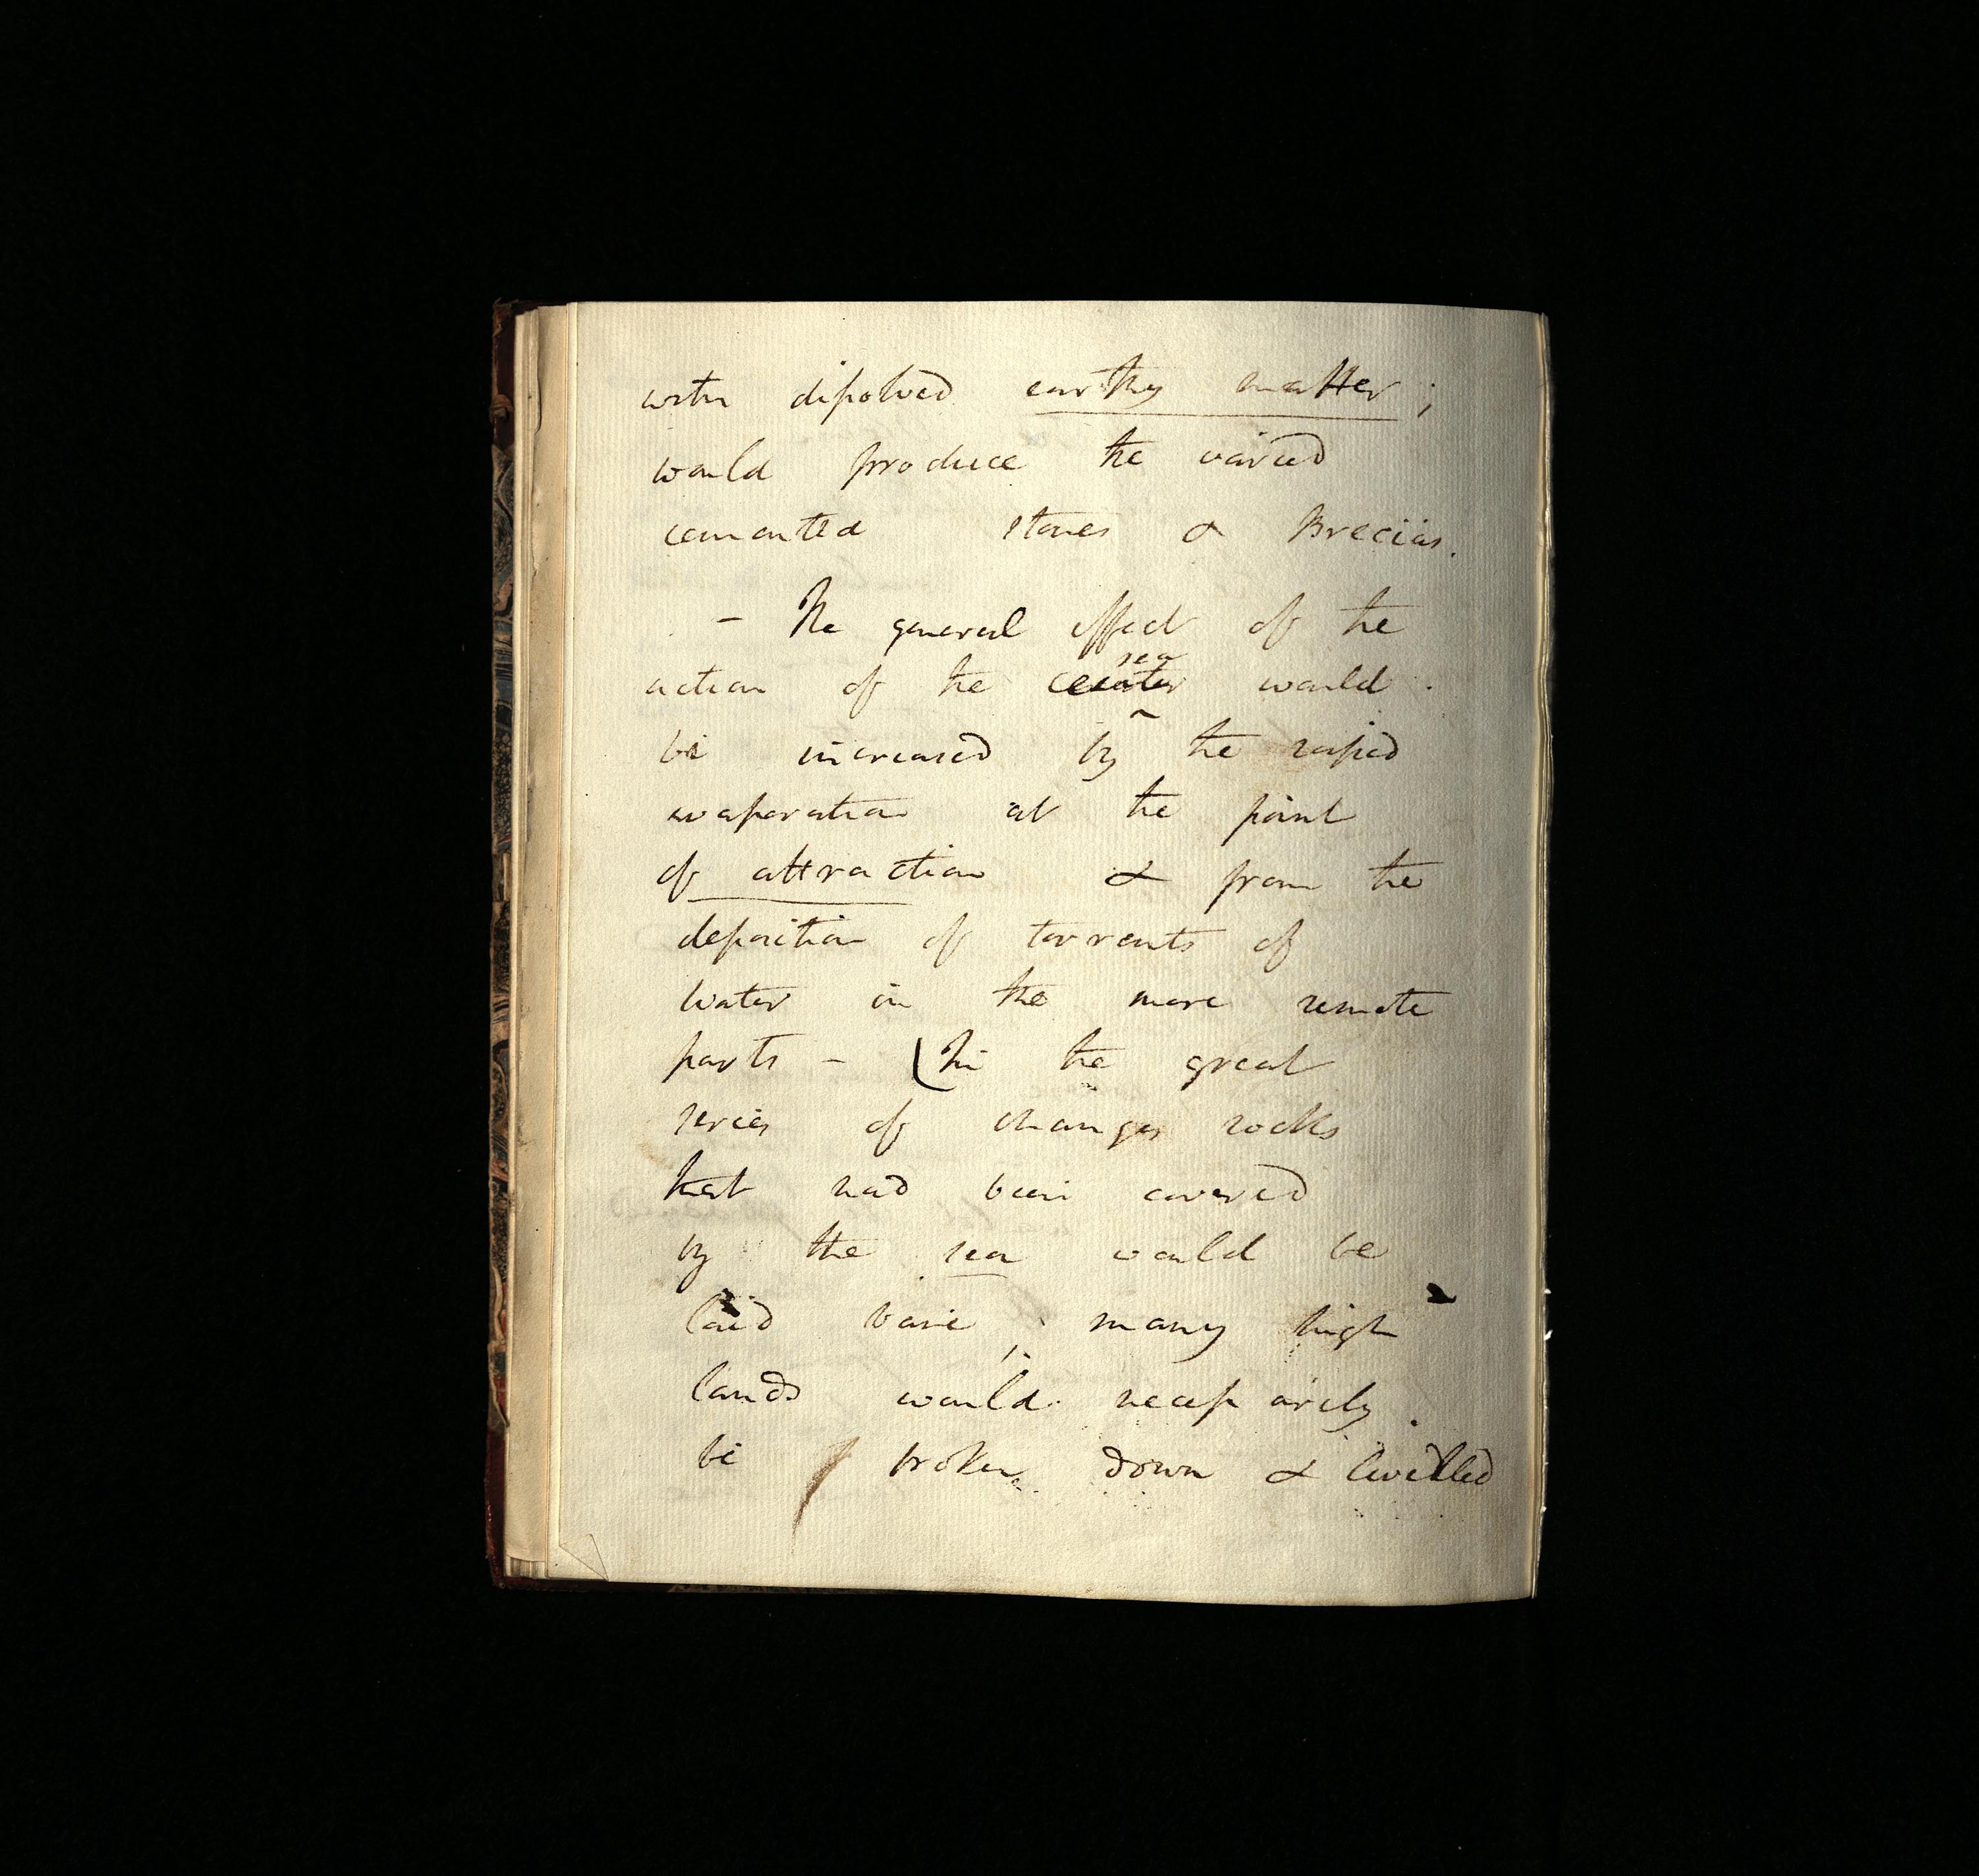 with dissolved earthy matter;
would produce the varied
cemented stones & Brecias.
- The general effect of the
sea
action of the water would
be increased by the rapid
evaporation at the point
of attraction & from the
deposition of torrents of
water in the more remote
parts - (In the great
series of changes rocks
that had been covered
by the sea would be
laid bare, many high
lands would necessarily
be broken down & levelled